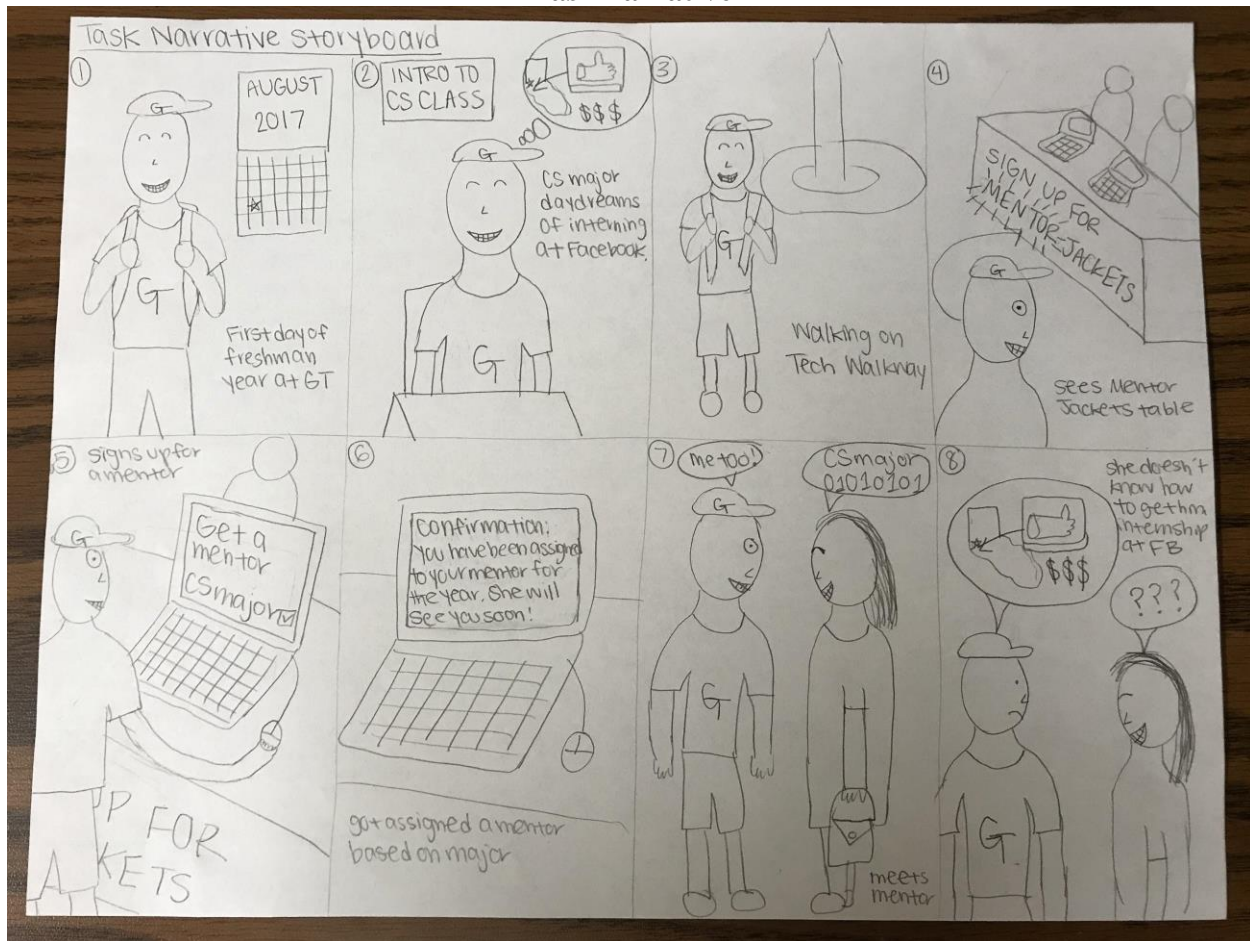 Task Narrative Storyboard
1
G
AUGUST
2017
G
First day of
freshman
year at GT
2
INTRO TO
CS CLASS
$$$
G
CS major
daydreams
of interning
at Facebook.
G
3
G
G
Walking on
Tech Walkway
4
SIGN UP FOR
MENTOR JACKETS
G
sees Mentor
Jackets table
5
signs up for
a mentor
G
Get a
mentor
CS major
UP FOR
KETS
6
Confirmation:
You have been assigned
to your mentor for
the year. She will
see you soon!
got assigned a mentor
based on major
7
me too!
CS major
01010101
G
G
meets
mentor
8
she doesn't
know how
to get him
internship
at FB
$$$
???
G